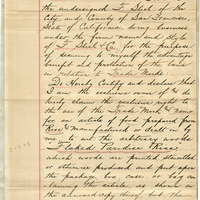 the undersigned F. Shed of the
City and County of San Francisco,
State of California, doing business
under the firm name and style
of F. Shed & Co. for the purpose
of securing to myself the advantage
benefit and protection of the laws
in relation to Trade Marks
Do hereby Certify and declare that
I am the exclusive owner of and do
hereby claim the exclusive right to
the use of the Trade Mark & name
for an article of food prepared from
Rice & manufactured or dealt in by
me to wit the arbitrary words
Flaked Paradise Rice
which words are printed stenciled
or otherwise produced and put upon
the package box case or bag con-
taining the article as shown in
the annexed copy thereof but the